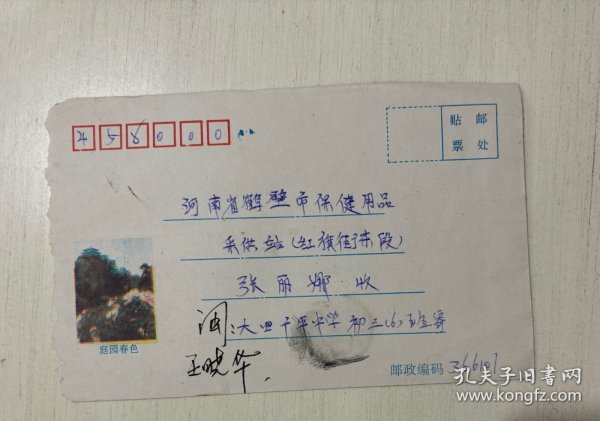 458000
贴 邮
票 处
河南省鹤壁市保健用品
采供站(红旗街东段)
张丽娜 收
闽:大田千平中学初三(6)班寄
王晓华.
庭园春色
邮政编码 366107
孔夫子旧书网
www.kongfz.com